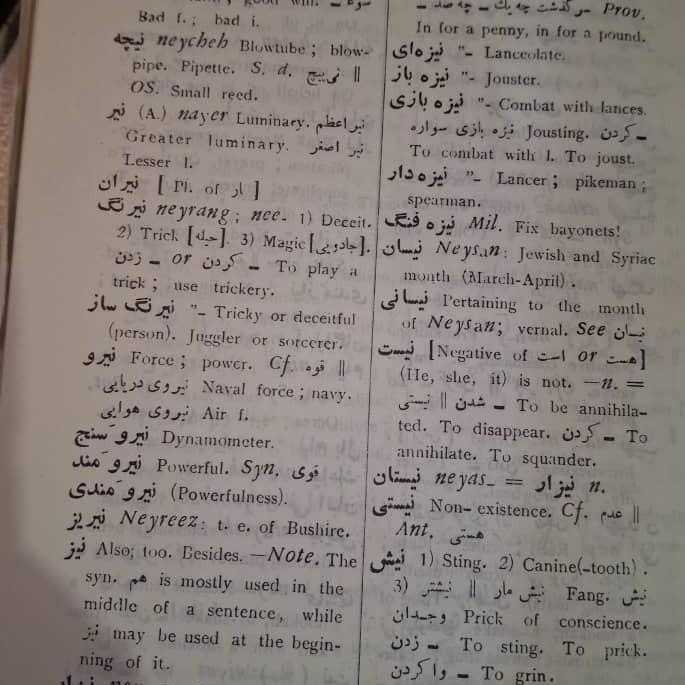 good will.
Bad f. ; bad i.
نیچه neycheh Blowtube ; blow-
pipe. Pipette. S. d. نی‌پیچ ||
OS. Small reed.
نیر (A.) nayer Luminary. نیر اعظم
Greater luminary. نیر اصغر
Lesser l.
نیران [ Pl. of نار ]
نیرنگ neyrang ; nee- 1) Deceit.
2) Trick [حیله]. 3) Magic [جادویی].
ـ کردن or ـ زدن To play a
trick ; use trickery.
نیرنگ ساز "- Tricky or deceitful
(person). Juggler or sorcerer.
نیرو Force ; power. Cf. قوه ||
نیروی دریایی Naval force ; navy.
نیروی هوایی Air f.
نیروسنج Dynamometer.
نیرومند Powerful. Syn. قوی
نیرومندی (Powerfulness).
نیریز Neyreez: t. e. of Bushire.
نیز Also; too. Besides. —Note. The
syn. هم is mostly used in the
middle of a sentence, while
نیز may be used at the begin-
ning of it.
سرگذشت چه یک ـ چه صد ـ Prov.
In for a penny, in for a pound.
نیزه‌ای "- Lanceolate.
نیزه باز "- Jouster.
نیزه بازی "- Combat with lances.
نیزه بازی سواره Jousting. ـ کردن
To combat with l. To joust.
نیزه دار "- Lancer ; pikeman ;
spearman.
نیزه فنگ Mil. Fix bayonets!
نیسان Neysan: Jewish and Syriac
month (March-April).
نیسانی Pertaining to the month
of Neysan; vernal. See نیسان
نیست [Negative of است or هست]
(He, she, it) is not. —n. =
نیستی || ـ شدن To be annihila-
ted. To disappear. ـ کردن To
annihilate. To squander.
نیستان neyas- = نیزار n.
نیستی Non-existence. Cf. عدم ||
Ant. هستی
نیش 1) Sting. 2) Canine(-tooth).
3) نیشتر || نیش مار Fang. نیش
وجدان Prick of conscience.
ـ زدن To sting. To prick.
ـ وا کردن To grin.